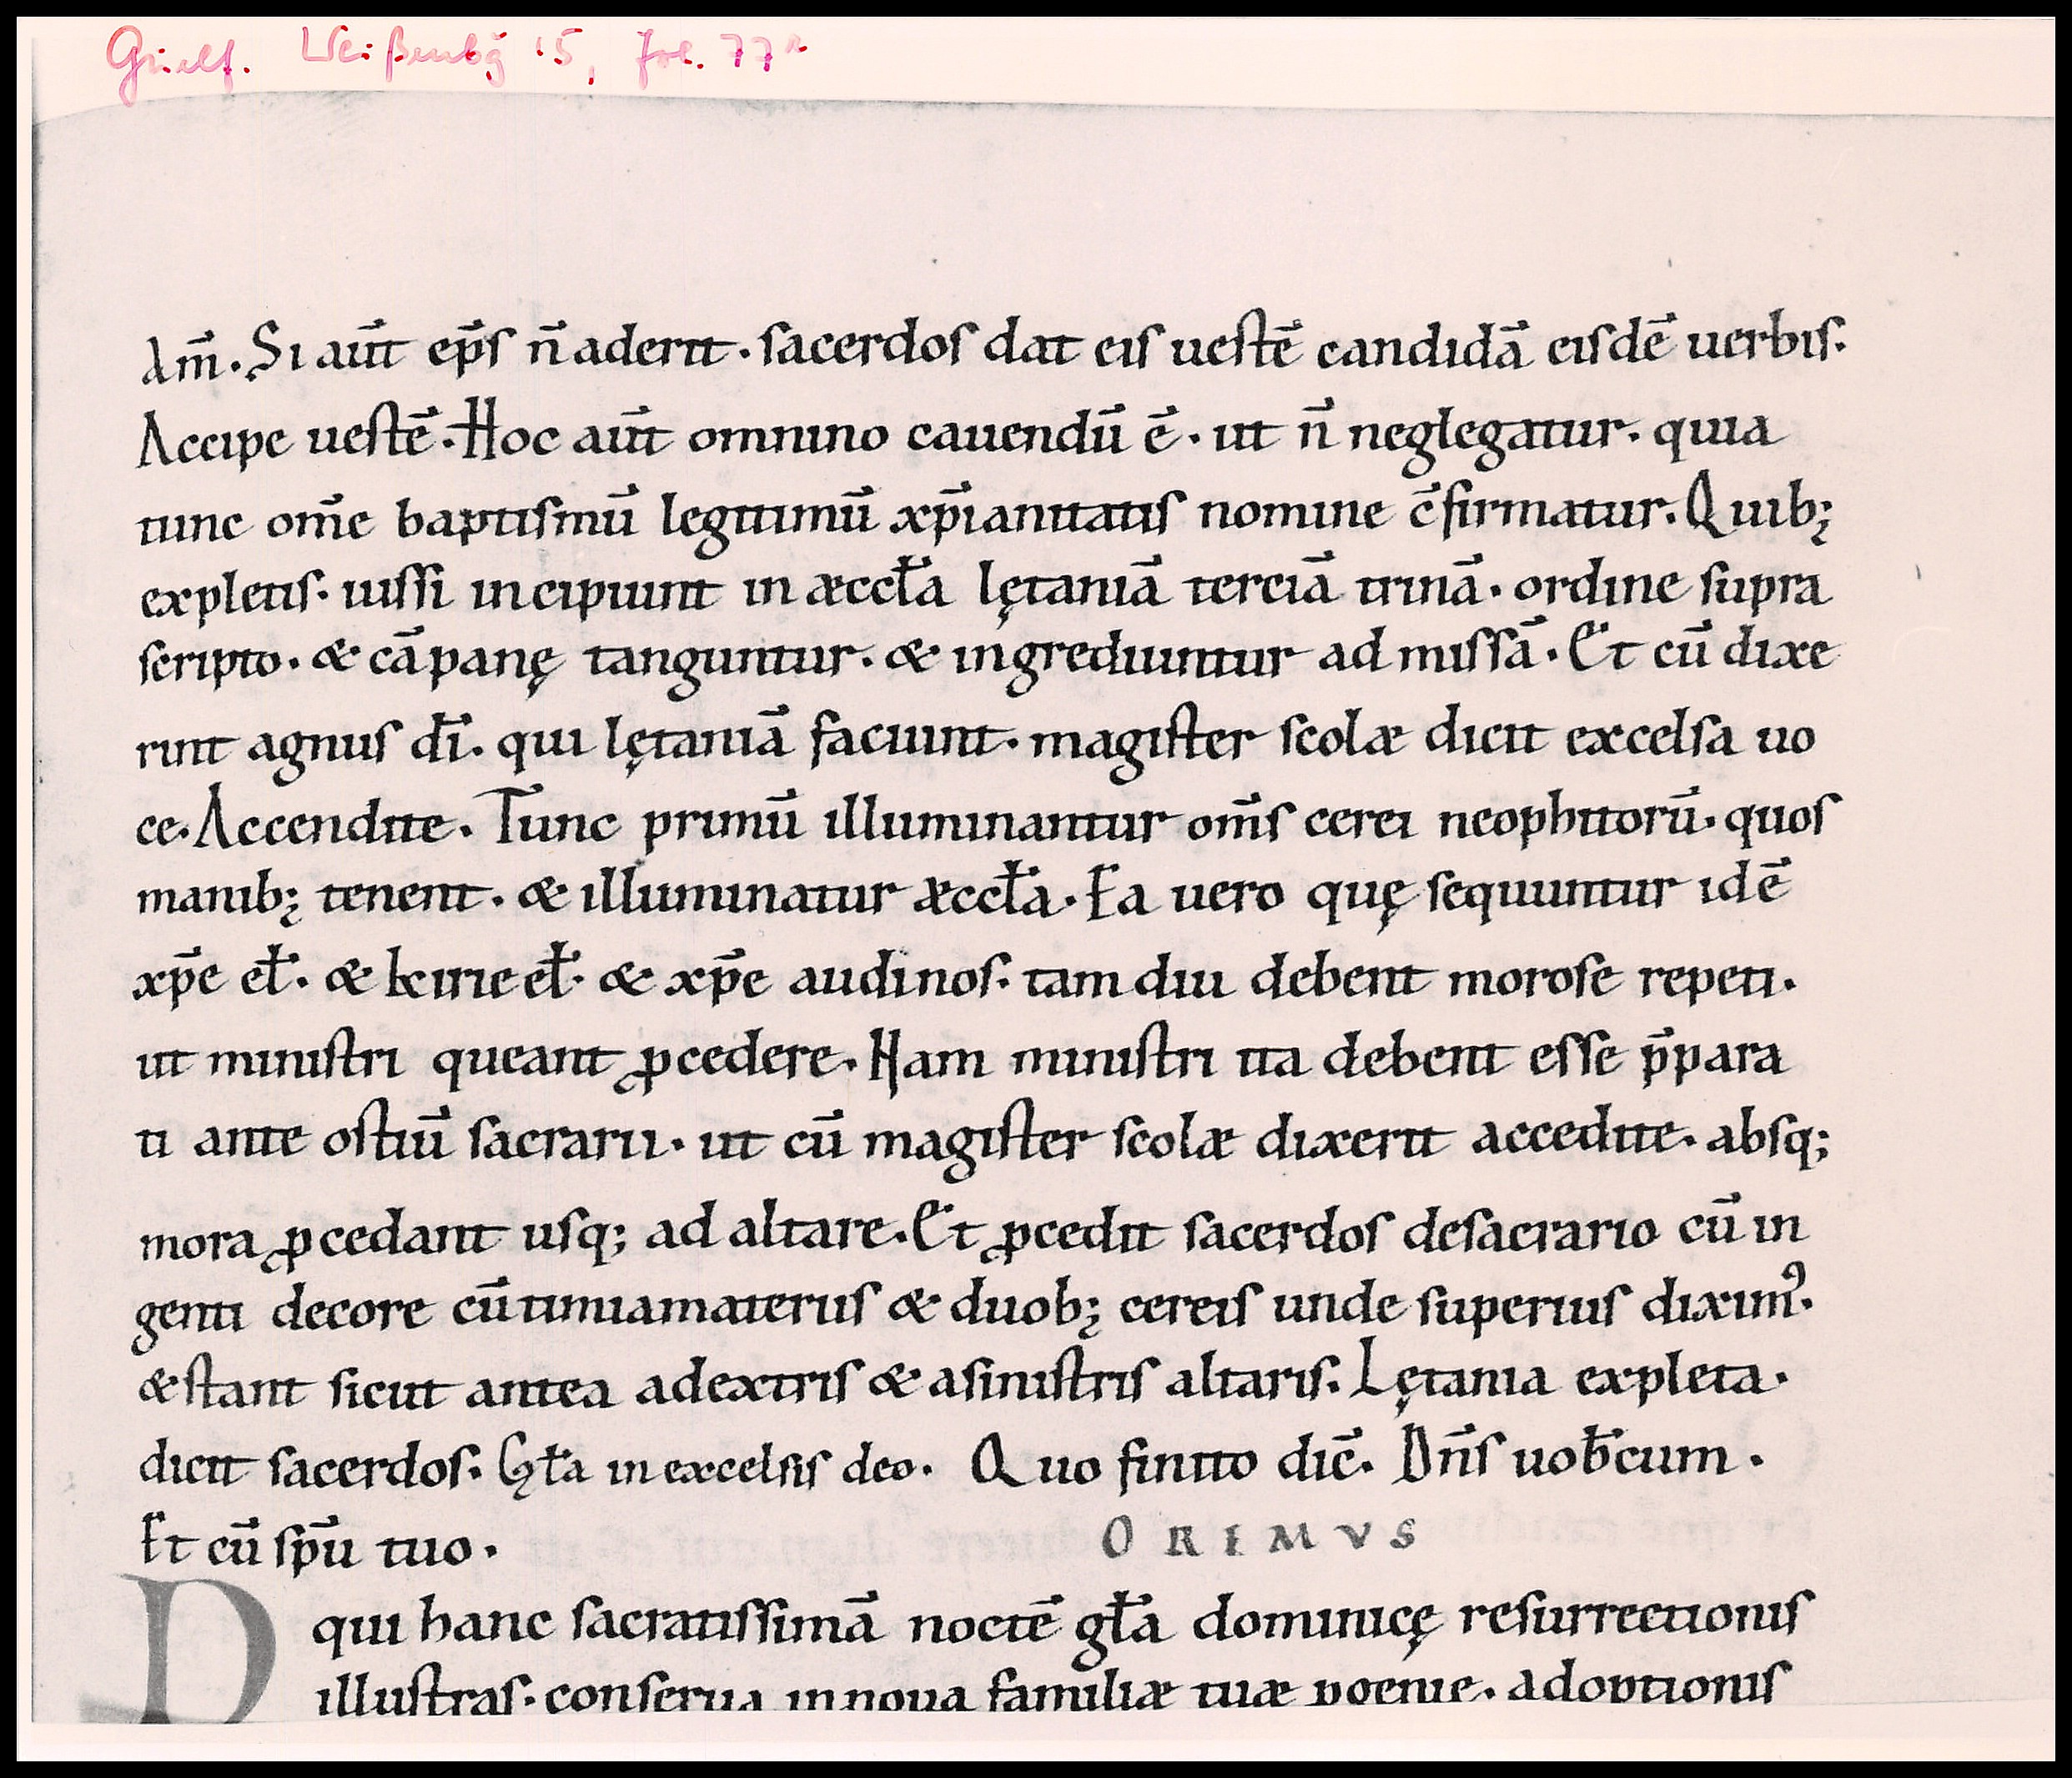 Guelf. Weißenbg 15, fol. 77r
Am̄. Si aut̄ ep̄s n̄ aderit. sacerdos dat eis uestē candidā eisdē uerbis.
Accipe uestē. Hoc aut̄ omnino cauendū ē. ut n̄ neglegatur. quia
tunc om̄e baptismū legitimū xp̄ianitatis nomine c̄firmatur. Quib;
expletis. iussi incipiunt in æccła lętaniā terciā trinā. ordine supra
scripto. & cāpanę tanguntur. & ingrediuntur ad missā. Et cū dixe
rint agnus dī. qui lętaniā faciunt. magister scolæ dicit excelsa uo
ce. Accendite. Tunc primū illuminantur om̄s cerei neophitorū. quos
manib; tenent. & illuminatur æccła. Ea uero quę sequuntur idē
xp̄e eł. & kirieeł. & xp̄e audinos. tam diu debent morose repeti.
ut ministri queant ꝓcedere. Nam ministri ita debent esse p̄para
ti ante ostiū sacrarii. ut cū magister scolæ dixerit accedite. absq;
mora ꝓcedant usq; ad altare. Et ꝓcedit sacerdos desacrario cū in
genti decore cū timiamateriis & duob; cereis unde superius diximꝰ.
& stant sicut antea adextris & asinistris altaris. Lętania expleta.
dicit sacerdos. Gła in excelsis deo. Quo finito dic̄. Dn̄s uob̄cum.
Et cū sp̄u tuo. ORIMVS
D qui hanc sacratissimā noctē gła dominicę resurrectionis
illustras. conserua innoua familiæ tuæ pgenie. adoptionis